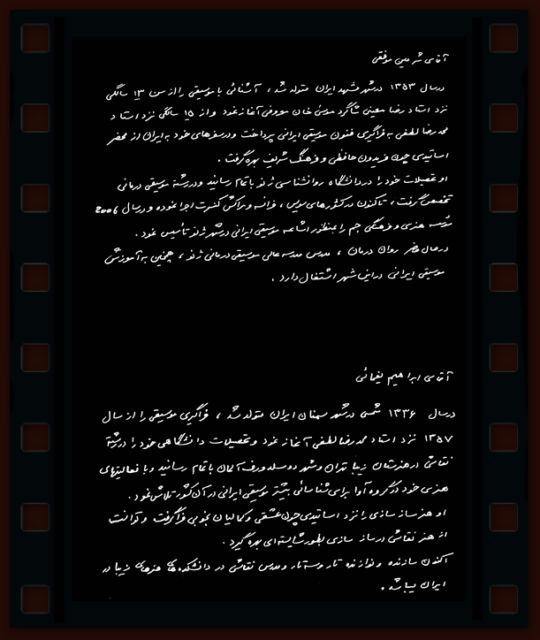 آقای شرمین موفقی
در سال ۱۳۵۳ در شهر مشهد ایران متولد شد ، آشنائی با موسیقی را از سن ۱۳ سالگی
نزد استاد رضا معینی شاگرد موسی خان معروفی آغاز نمود و از ۱۵ سالگی نزد استاد
محمد رضا لطفی به فراگیری فنون موسیقی ایرانی پرداخت و در سفرهای خود به ایران از محضر
اساتیدی چون فریدون حافظی و فرهنگ شریف بهره گرفت .
او تحصیلات خود را در دانشگاه روانشناسی ژنو باتمام رسانید و در رشته موسیقی درمانی
تخصص گرفت ، تاکنون در کشورهای سویس ، فرانسه و مراکش کنسرت اجرا نموده و در سال 2006
مؤسسه هنری و فرهنگی جم را بمنظور اشاعه موسیقی ایرانی در شهر ژنو تأسیس نمود .
در حال حاضر روان درمان ، مدرس مدرسه عالی موسیقی درمانی ژنو ، همچنین به آموزش
موسیقی ایرانی در این شهر اشتغال دارد .
آقای ابراهیم یغمائی
در سال ۱۳۳۶ شمسی در شهر سمنان ایران متولد شد ، فراگیری موسیقی را از سال
۱۳۵۷ نزد استاد محمد رضا لطفی آغاز نمود و تحصیلات دانشگاهی خود را در رشته
نقاشی در هنرستان زیبا تهران و شهر دوسلدورف آلمان باتمام رسانید و با فعالیتهای
هنری خود در گروه آوا برای شناسائی بیشتر موسیقی ایرانی در آن کشور تلاش نمود .
او هنر ساز سازی را نزد اساتیدی چون عشقی و کمالیان بخوبی فراگرفت و توانست
از هنر نقاشی در ساز سازی بطور شایسته‌ای بهره گیرد .
اکنون سازنده و نوازنده تار و سه‌تار و مدرس نقاشی در دانشکده‌های هنرهای زیبا در
ایران میباشد .